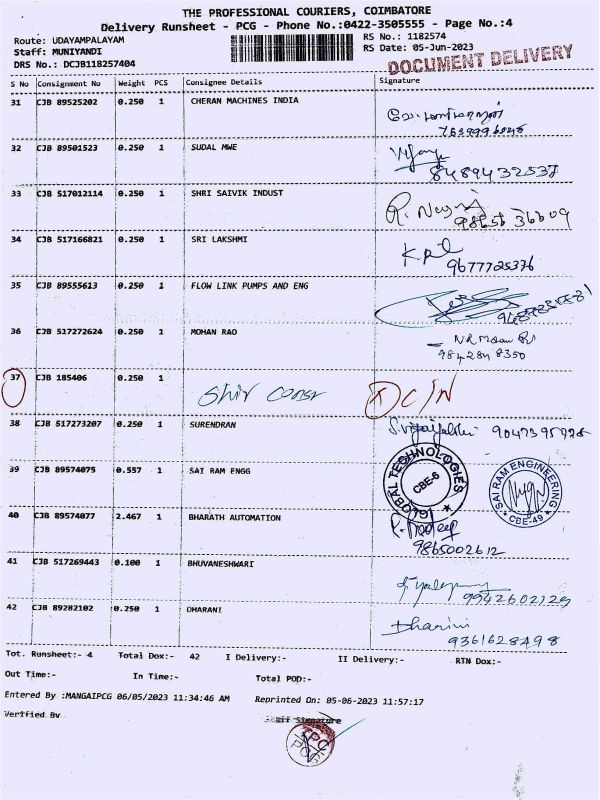 THE PROFESSIONAL COURIERS, COIMBATORE
Delivery Runsheet - PCG - Phone No.:0422-3505555 - Page No.:4
Route: UDAYAMPALAYAM RS No.: 1182574
Staff: MUNIYANDI RS Date: 05-Jun-2023
DRS No.: DCJB118257404
DOCUMENT DELIVERY
S No Consignment No Weight PCS Consignee Details Signature
31 CJB 89525202 0.250 1 CHERAN MACHINES INDIA
32 CJB 89501523 0.250 1 SUDAL MWE
8489432537
33 CJB 517012114 0.250 1 SHRI SAIVIK INDUST
34 CJB 517166821 0.250 1 SRI LAKSHMI
9677725376
35 CJB 89555613 0.250 1 FLOW LINK PUMPS AND ENG
36 CJB 517272624 0.250 1 MOHAN RAO
9842848350
37 CJB 185406 0.250 1 Shiv Const DC/N
38 CJB 517273207 0.250 1 SURENDRAN
39 CJB 89574075 0.557 1 SAI RAM ENGG
GLOBAL TECHNOLOGIES CBE-6
SAI RAM ENGINEERING CBE-49
40 CJB 89574077 2.467 1 BHARATH AUTOMATION
9865002612
41 CJB 517269443 0.100 1 BHUVANESHWARI
9942602129
42 CJB 89282102 0.250 1 DHARANI Dharini
9361628498
Tot. Runsheet:- 4 Total Dox:- 42 I Delivery:- II Delivery:- RTN Dox:-
Out Time:- In Time:- Total POD:-
Entered By :MANGAIPCG 06/05/2023 11:34:46 AM Reprinted On: 05-06-2023 11:57:17
Verified By Staff Signature